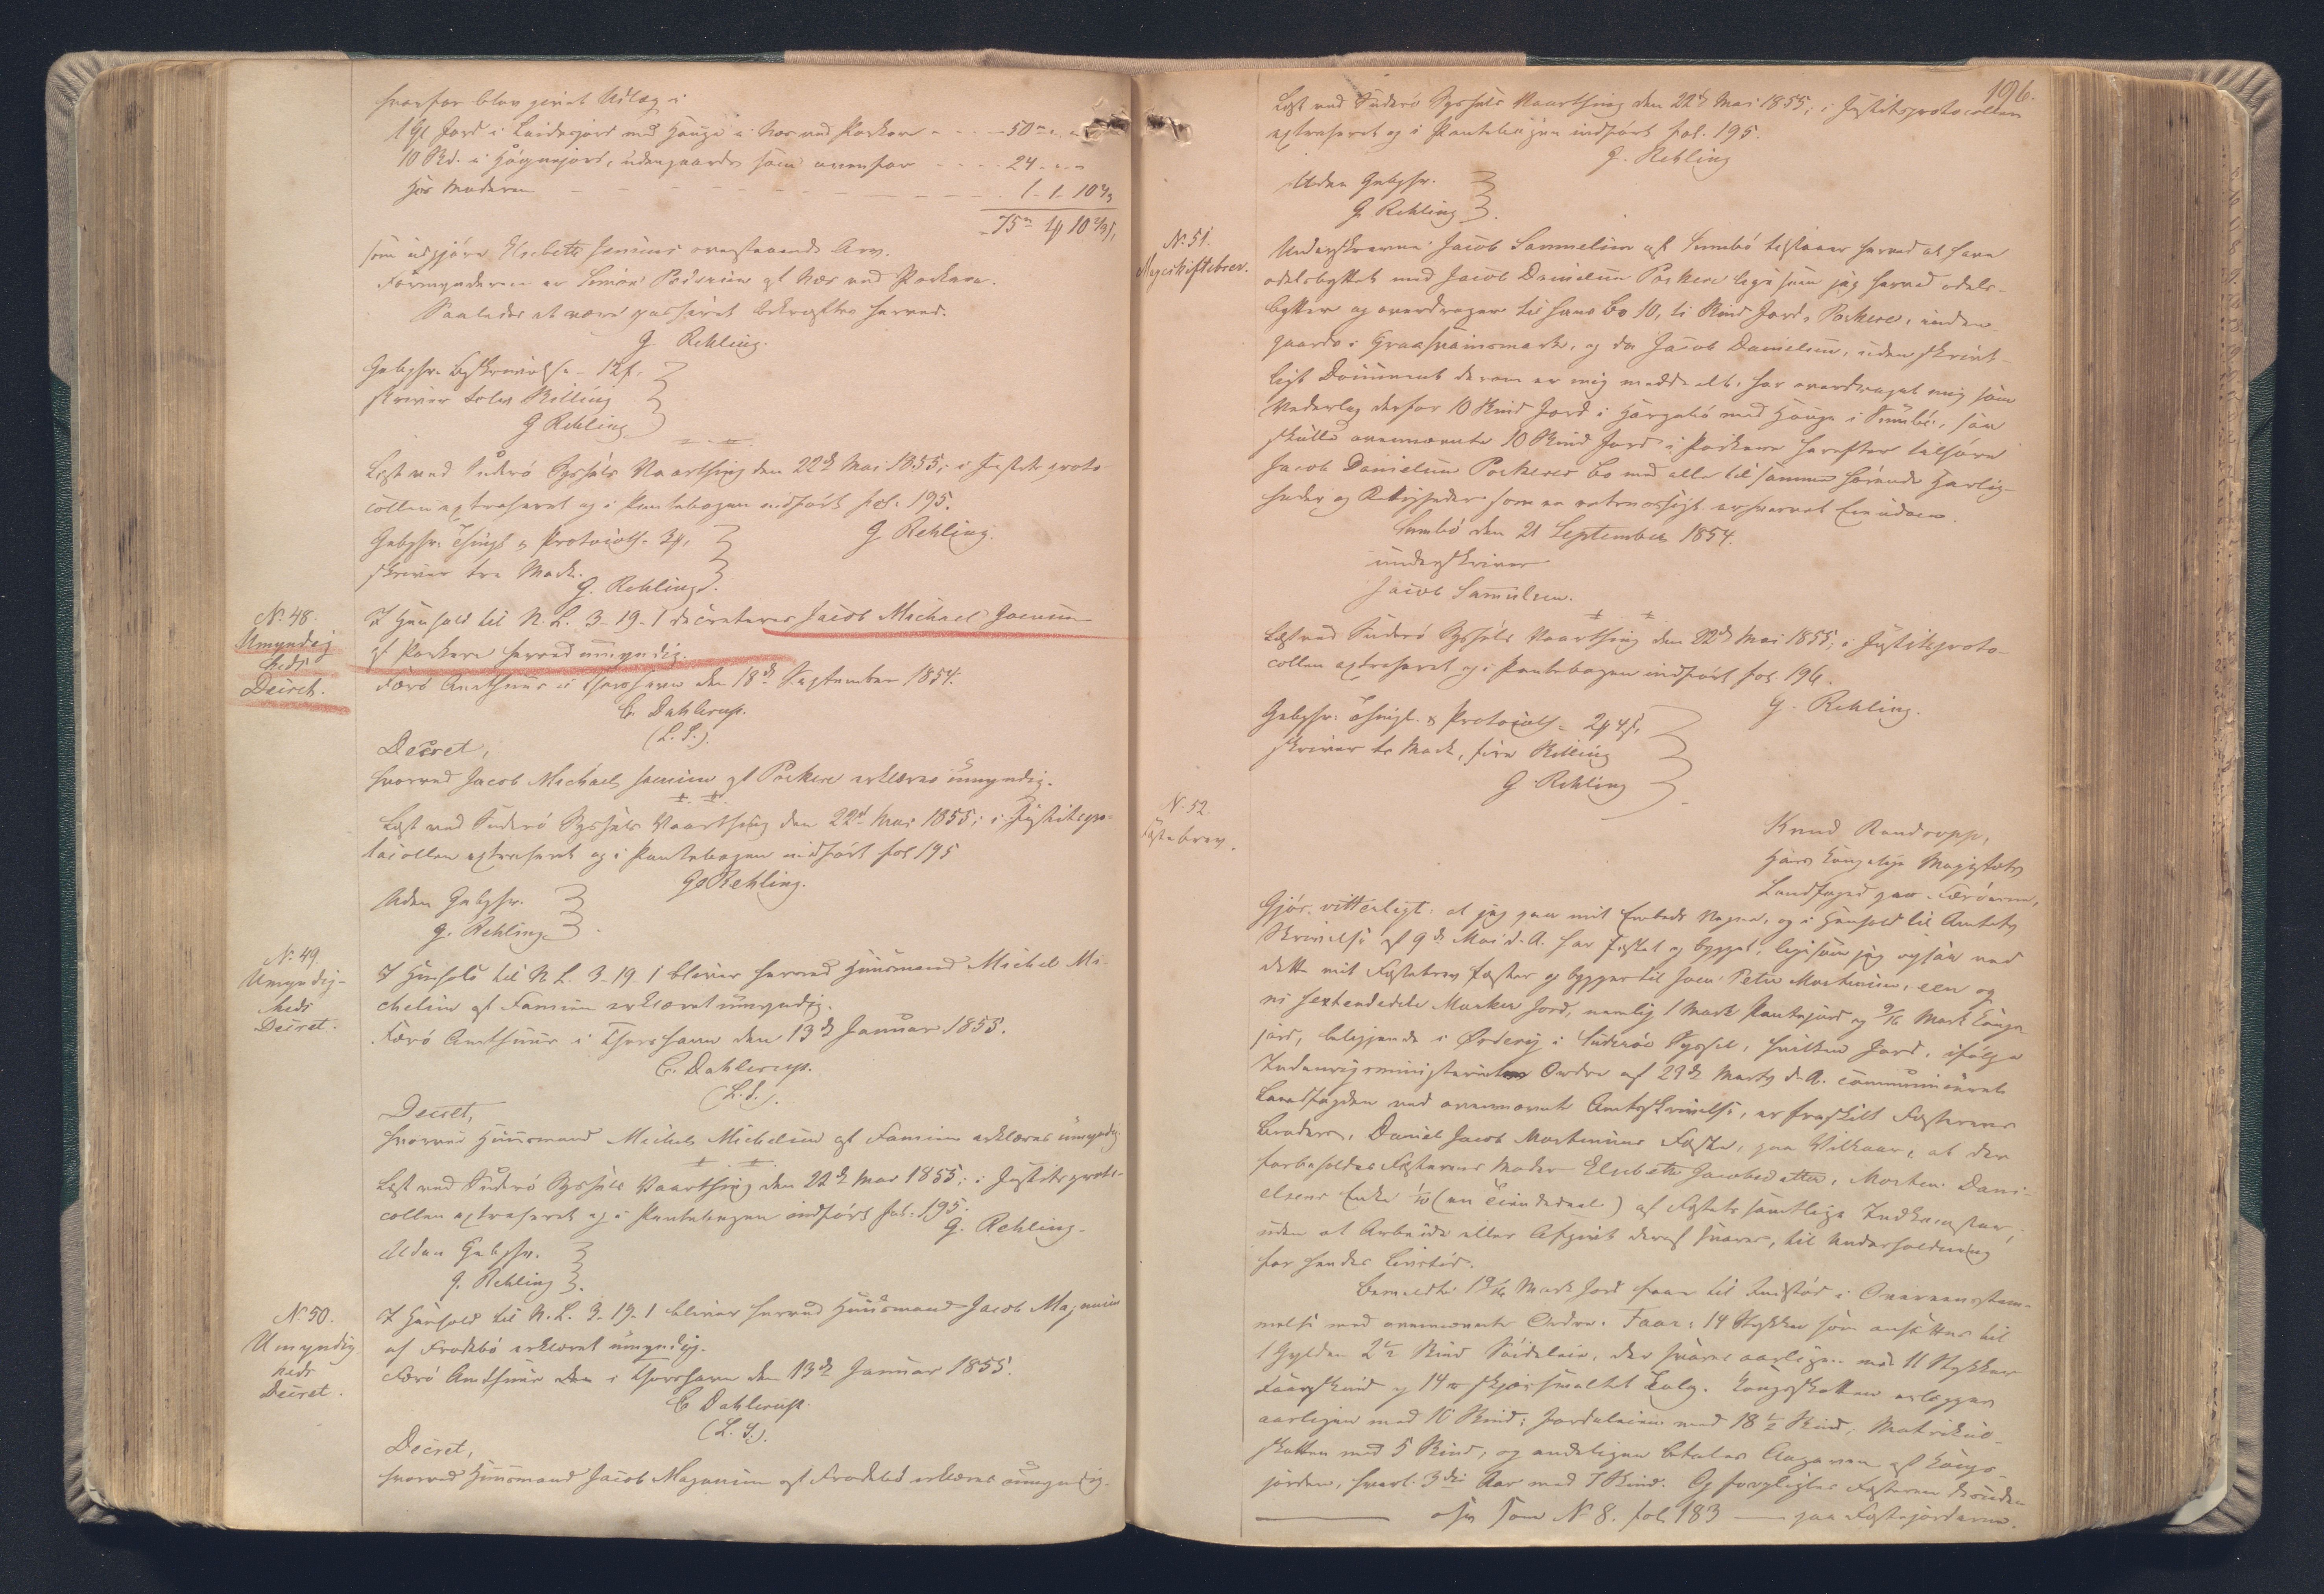 hvorfor blev givet Udlæg i
1 Gl Jord i Leidarjord med Hauge i Næs ved Porkere - - - 50
10 Skd. i Høgnejord, udengaards som ovenfor - - - 24
hos Moderen - - - 1 - 1 - 10 2/3
75 1 10 2/3
som udgjøre Elsebeth Joensens ovenstaaende Arv.
Formynderen er Simon Poulsen af Næs ved Porkere.
Saaledes at være passeret bekræftes herved.
G. Rehling.
Gebyhr. Beskrivelse - 12 s.
skriver tolv Skilling
G Rehling
Læst ved Suderø Syssels Vaarthing den 22d Mai 1855; i Justitsproto-
collen extraheret og i Pantebogen indført fol. 195.
G Rehling.
Gebyhr. Thingl. & Protocoll - 3
skriver tre Mark.
G. Rehling.
N. 48.
Umyndig
heds
Decret.
I Henhold til N. L. 3-19-1 decreteres Jacob Michael Joensen
af Porkere herved umyndig.
Færø Amthuus i Thorshavn den 18d September 1854.
C. Dahlerup.
(L. S.)
Decret,
hvorved Jacob Michael Joensen af Porkere erklæres umyndig.
Læst ved Suderø Syssels Vaarthing den 22d Mai 1855; i Justitspro-
tocollen extraheret og i Pantebogen indført fol 195
G Rehling.
Uden Gebyhr.
G. Rehling
N. 49.
Umyndig-
heds
Decret.
I Henhold til N. L. 3-19-1 bliver herved Huusmand Michel Mi-
chelsen af Famien erklæret umyndig.
Færø Amthuus i Thorshavn den 13d Januar 1855.
C. Dahlerup.
(L. S.)
Decret,
hvorved Huusmand Michel Michelsen af Famien erklæres umyndig
Læst ved Suderø Syssels Vaarthing den 22d Mai 1855; i Justitsproto-
collen extraheret og i Pantebogen indført fol. 195.
G. Rehling.
Uden Gebyhr.
G. Rehling
N. 50.
Umyndig
heds
Decret.
I Henhold til N. L. 3-19-1 bliver herved Huusmand Jacob Magnusen
af Frodebø erklæret umyndig.
Færø Amthuus den i Thorshavn den 13d Januar 1855.
C Dahlerup.
(L. S.)
Decret,
hvorved Huusmand Jacob Magnusen af Frodebø erklæres umyndig.
196.
Læst ved Suderø Syssels Vaarthing den 22d Mai 1855; i Justitsprotocollen
extraheret og i Pantebogen indført fol. 195.
G. Rehling
Uden Gebyhr.
G. Rehling
N. 51.
Mageskiftebrev.
Underskrevne Jacob Samuelsen af Sumbø tilstaaer herved at have
odelsbyttet med Jacob Danielsen Porkere ligesom jeg herved odels-
bytter og overdrager til hans Bo 10, ti Skind Jord i Porkere, inden
gaards i Graasteinsmark, og da Jacob Danielsen, uden skrivt-
ligt Document derom er mig meddeelt, har overdraget mig som
Vederlag derfor 10 Skind Jord i Hørgabø med Hauge i Sumbø, saa
skulle ovennævnte 10 Skind Jord i Porkere herefter tilhøre
Jacob Danielsen Porkeres Bo med alle til samme hørende Herlig-
heder og Rettigheder som en retmæssigt erhvervet Eiendom.
Sumbø den 21 September 1854.
underskriver
Jacob Samuelsen.
Læst ved Suderø Syssels Vaarthing den 22d Mai 1855; i Justitsproto-
collen extraheret og i Pantebogen indført fol 196.
G. Rehling.
Gebyhr: Thingl. & Protocoll - 2 4
skriver to Mark, fire Skilling
G Rehling
N. 52.
Fæstebrev.
Knud Randropp,
Hans Kongelige Majestæts
Landfoged paa Færøerne,
Gjør vitterligt: at jeg paa mit Embeds Vegne, og i Henhold til Amtets
Skrivelse af 9d Mai d. A. har fæstet og bygget, ligesom jeg ogsaa ved
dette mit Fæstebrev fæster og bygger til Joen Peter Mortensen, een og
ni sextendedele Marker Jord, nemlig 1 Mark Pantejord og 9/16 Mark Konge
jord, beliggende i Ørderig i Suderøe Syssel, hvilken Jord, ifølge
Indenrigsministeriets Ordre af 29d Marts d. A. communiceret
Landfogden ved ovennævnte Amtsskrivelse, er fraskilt Fæsterens
Broders, Daniel Jacob Mortensens Fæste, paa Vilkaar, at der
forbeholdes Fæsterens Moder Elsebeth Jacobsdatter, Morten Dani-
elsens Enke 1/10 (en Tiendedeel) af Fæstets samtlige Indkomster,
uden at Arbeide eller Afgivt deraf svares, til Underholdning
for hendes Livstid.
Bemeldte 1 9/16 Mark Jord haar til Indstød i Overeensstem-
melse med ovennævnte Ordre. Faar: 14 Stykker som ansættes til
1 Gylden 2 1/2 Skind Søideleie, der svares aarligen med 11 Stykker
Faareskind og 14 skjørsmeltet Talg. Kongsskatten erlægges
aarligen med 10 Skind; Jordeleien med 18 1/2 Skind; Matricul-
skatten med 5 Skind, og endeligen betales Bygaven af Kongs-
jorden, hvert 3die Aar med 7 Skind. Og forpligtes Fæsteren desuden
som N 8. fol 183 paa Fæstejorderne.